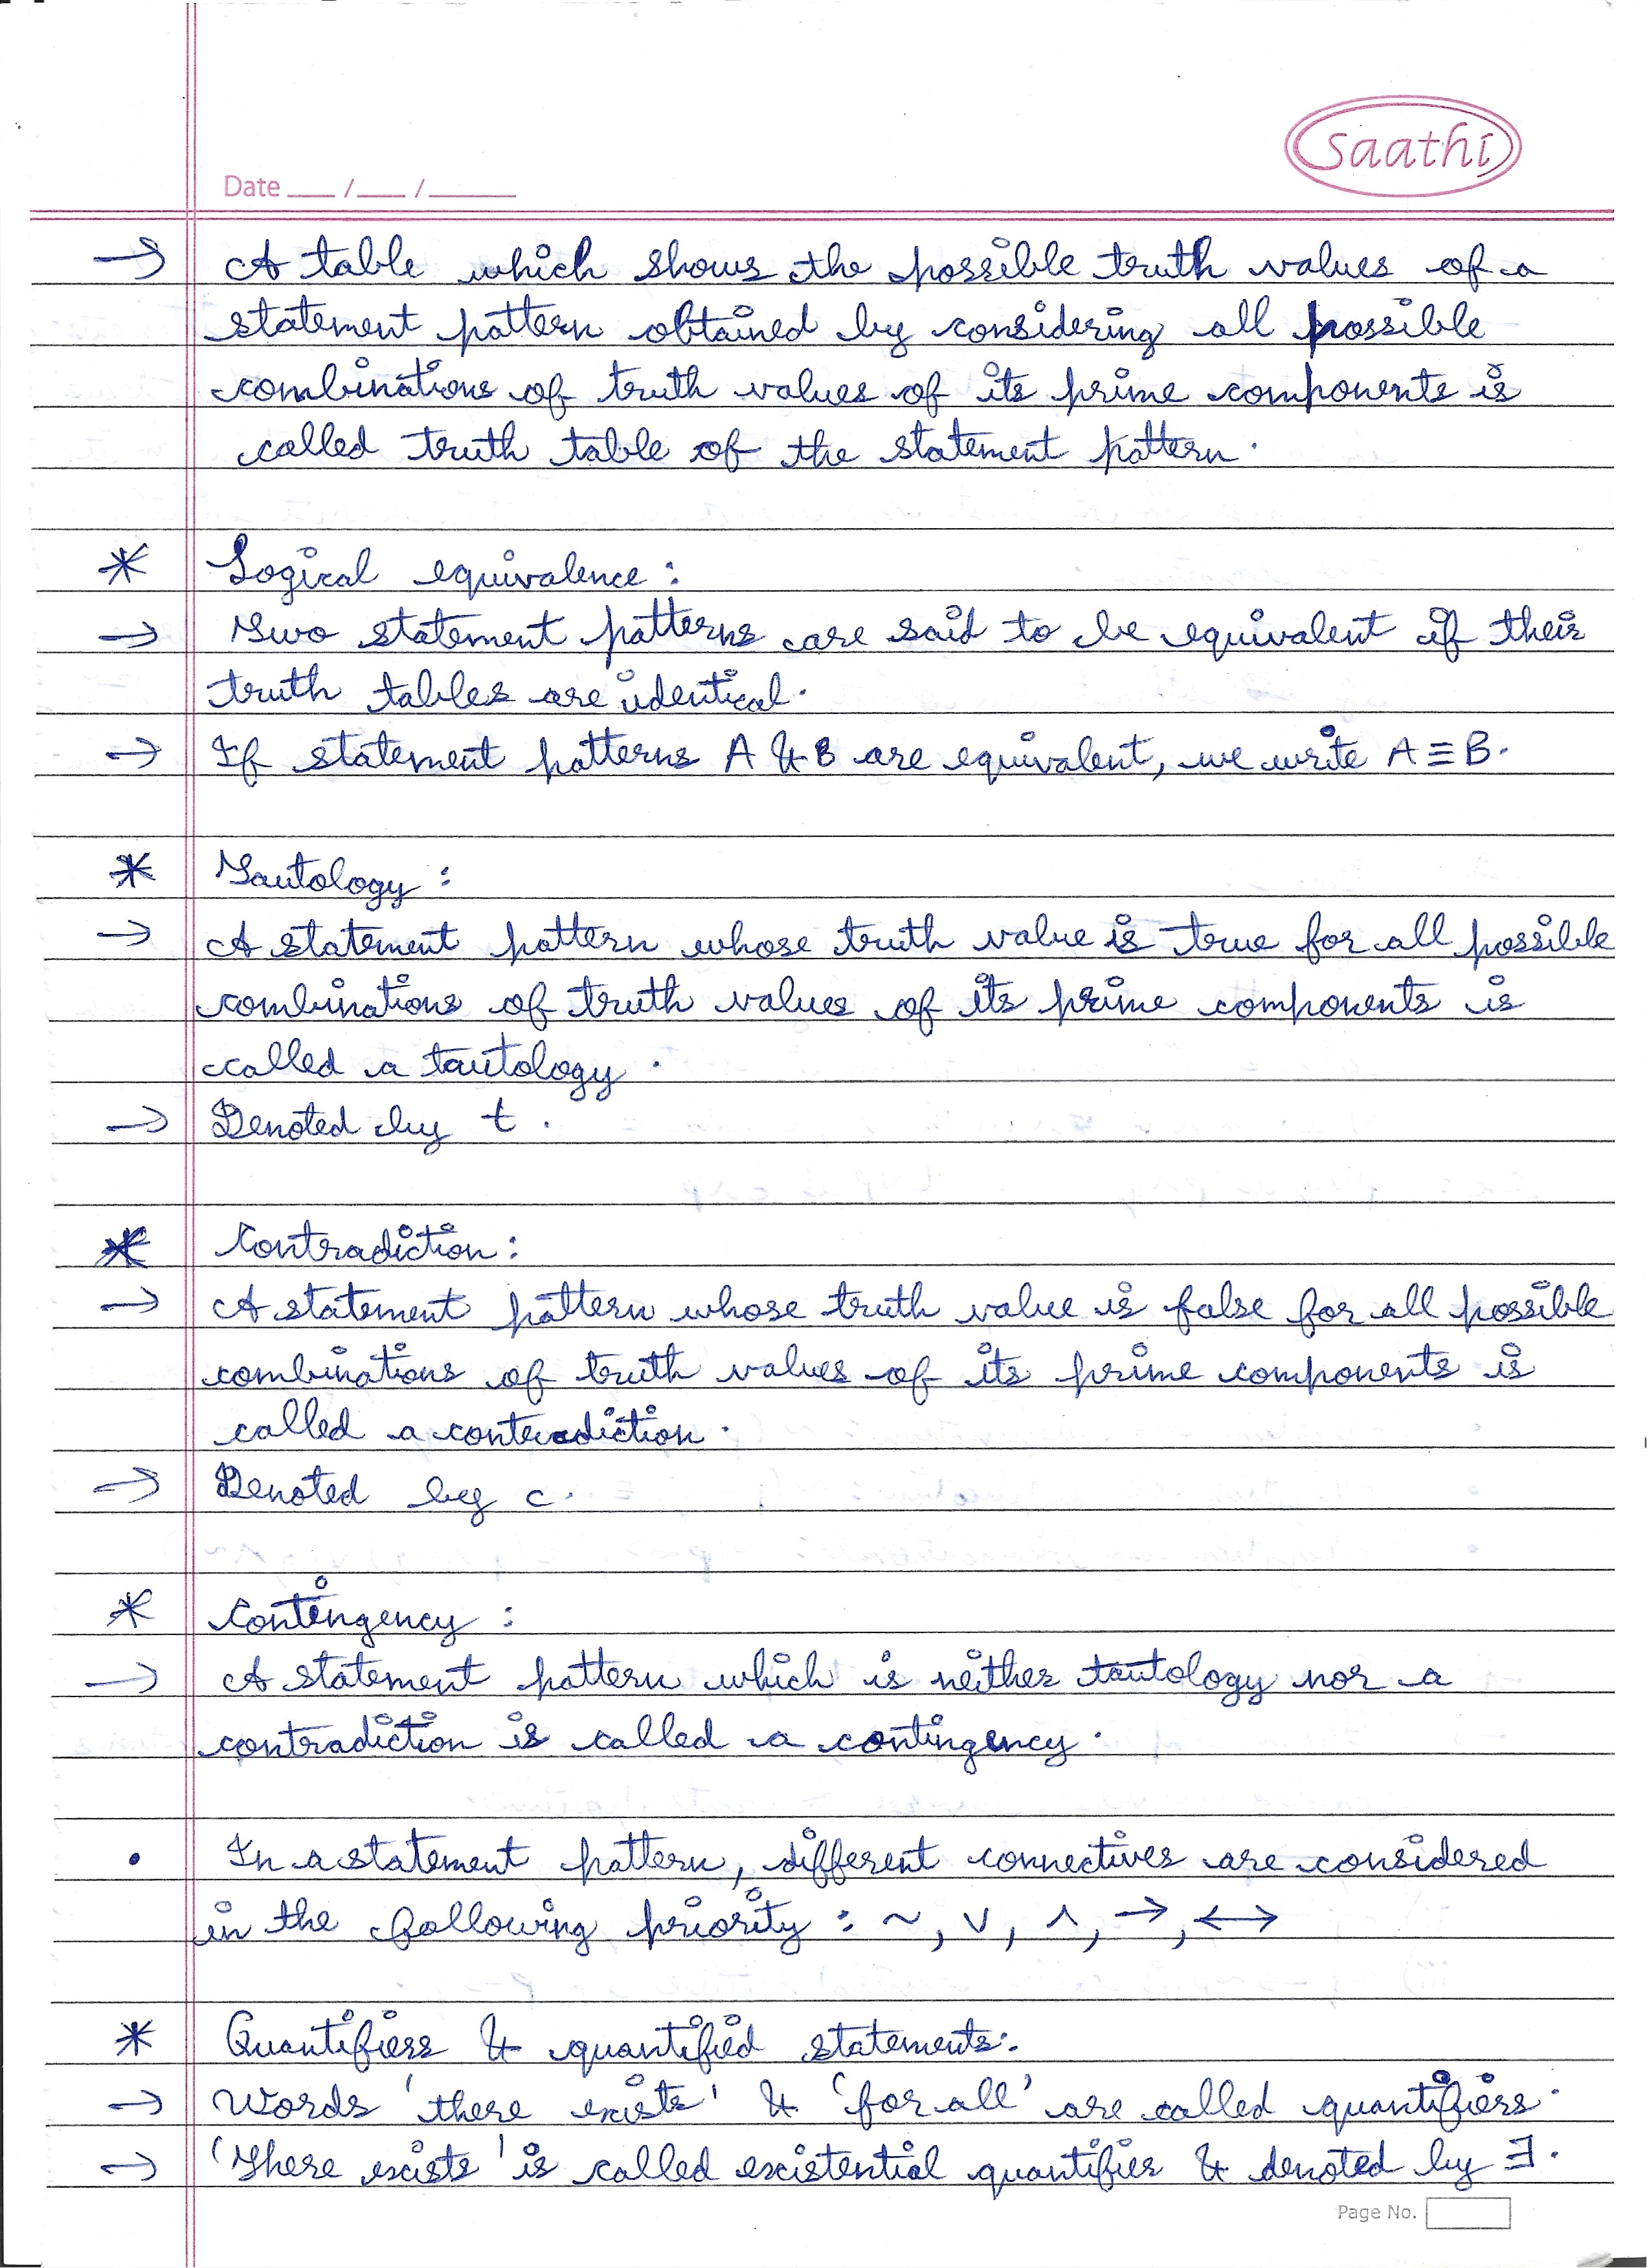 saathi
Date ___ /___ /______
→ A table which shows the possible truth values of a
statement pattern obtained by considering all possible
combinations of truth values of its prime components is
called truth table of the statement pattern.
* Logical equivalence :
→ Two statement patterns are said to be equivalent if their
truth tables are identical.
→ If statement patterns A & B are equivalent, we write A ≡ B.
* Tautology :
→ A statement pattern whose truth value is true for all possible
combinations of truth values of its prime components is
called a tautology.
→ Denoted by t.
* Contradiction :
→ A statement pattern whose truth value is false for all possible
combinations of truth values of its prime components is
called a contradiction.
→ Denoted by c.
* Contingency :
→ A statement pattern which is neither tautology nor a
contradiction is called a contingency.
• In a statement pattern, different connectives are considered
in the following priority : ~, ∨, ∧, →, ↔
* Quantifiers & quantified statements:
→ Words 'there exists' & 'for all' are called quantifiers.
→ 'There exists' is called existential quantifier & denoted by ∃.
Page No.